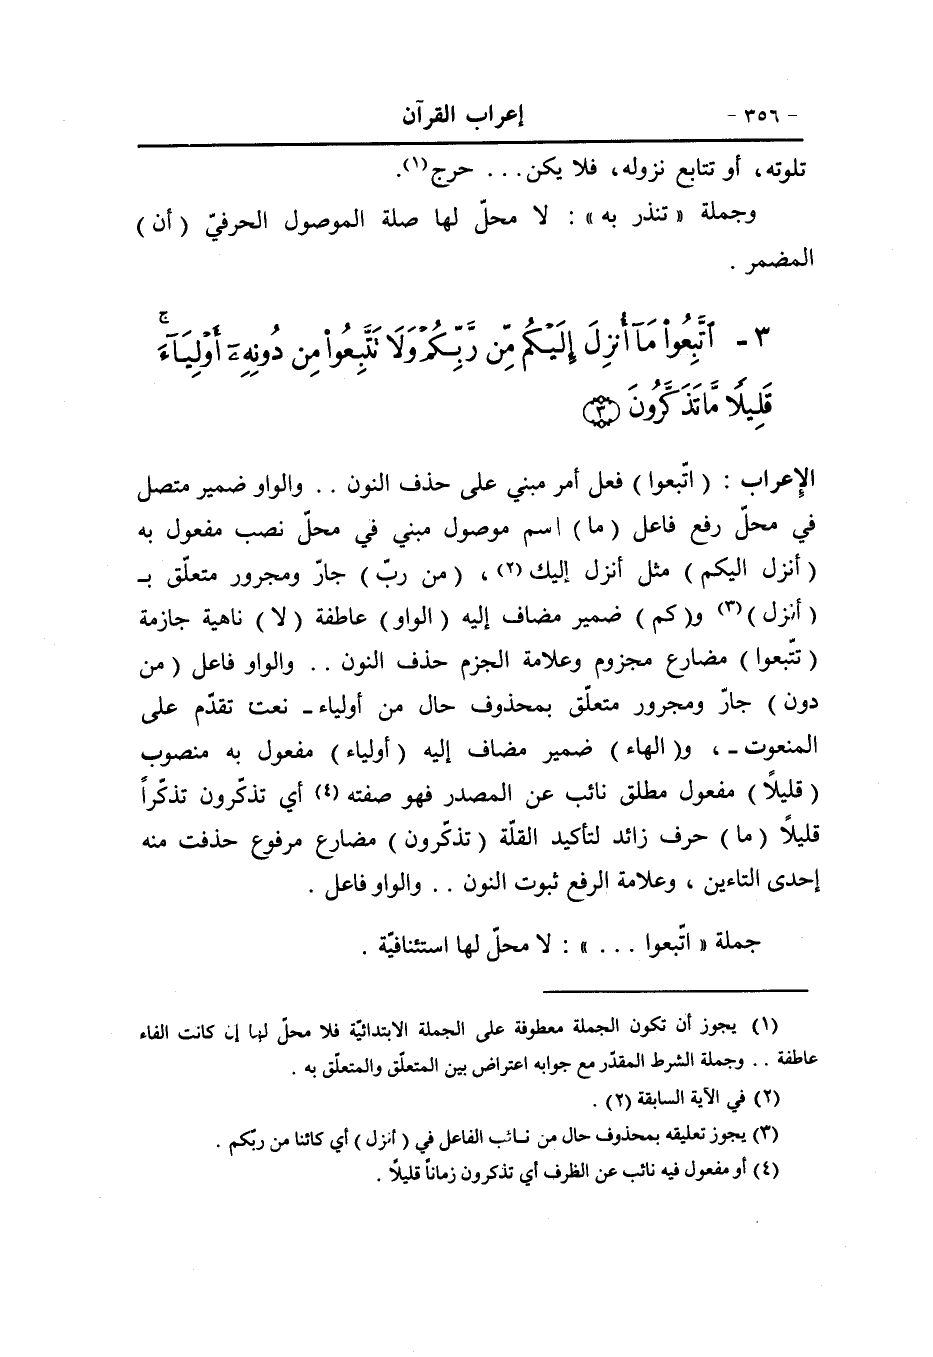 - ٣٥٦ - إعراب القرآن
تلوته، أو تتابع نزوله، فلا يكن... حرج(١).
وجملة « تنذر به» : لا محلّ لها صلة الموصول الحرفيّ ( أن )
المضمر .
٣ - ٱتَّبِعُوا۟ مَآ أُنزِلَ إِلَيْكُم مِّن رَّبِّكُمْ وَلَا تَتَّبِعُوا۟ مِن دُونِهِۦٓ أَوْلِيَآءَ ۚ
قَلِيلًا مَّا تَذَكَّرُونَ ﴿٣﴾
الإعراب : ( اتّبعوا ) فعل أمر مبني على حذف النون . . والواو ضمير متصل
في محلّ رفع فاعل ( ما ) اسم موصول مبني في محلّ نصب مفعول به
( أنزل اليكم ) مثل أنزل إليك (٢) ، ( من ربّ ) جارّ ومجرور متعلّق بـ
( أنزل ) (٣) و( كم ) ضمير مضاف إليه ( الواو ) عاطفة ( لا ) ناهية جازمة
( تتّبعوا ) مضارع مجزوم وعلامة الجزم حذف النون . . والواو فاعل ( من
دون ) جارّ ومجرور متعلّق بمحذوف حال من أولياء ـ نعت تقدّم على
المنعوت ـ ، و( الهاء ) ضمير مضاف إليه ( أولياء ) مفعول به منصوب
( قليلاً ) مفعول مطلق نائب عن المصدر فهو صفته (٤) أي تذكّرون تذكّراً
قليلاً ( ما ) حرف زائد لتأكيد القلّة ( تذكّرون ) مضارع مرفوع حذفت منه
إحدى التاءين ، وعلامة الرفع ثبوت النون . . والواو فاعل .
جملة « اتّبعوا . . . » : لا محلّ لها استئنافيّة .
(١) يجوز أن تكون الجملة معطوفة على الجملة الابتدائيّة فلا محلّ لها إن كانت الفاء
عاطفة . . وجملة الشرط المقدّر مع جوابه اعتراض بين المتعلّق والمتعلّق به .
(٢) في الآية السابقة (٢) .
(٣) يجوز تعليقه بمحذوف حال من نائب الفاعل في ( أنزل ) أي كائنا من ربّكم .
(٤) أو مفعول فيه نائب عن الظرف أي تذكرون زماناً قليلاً .